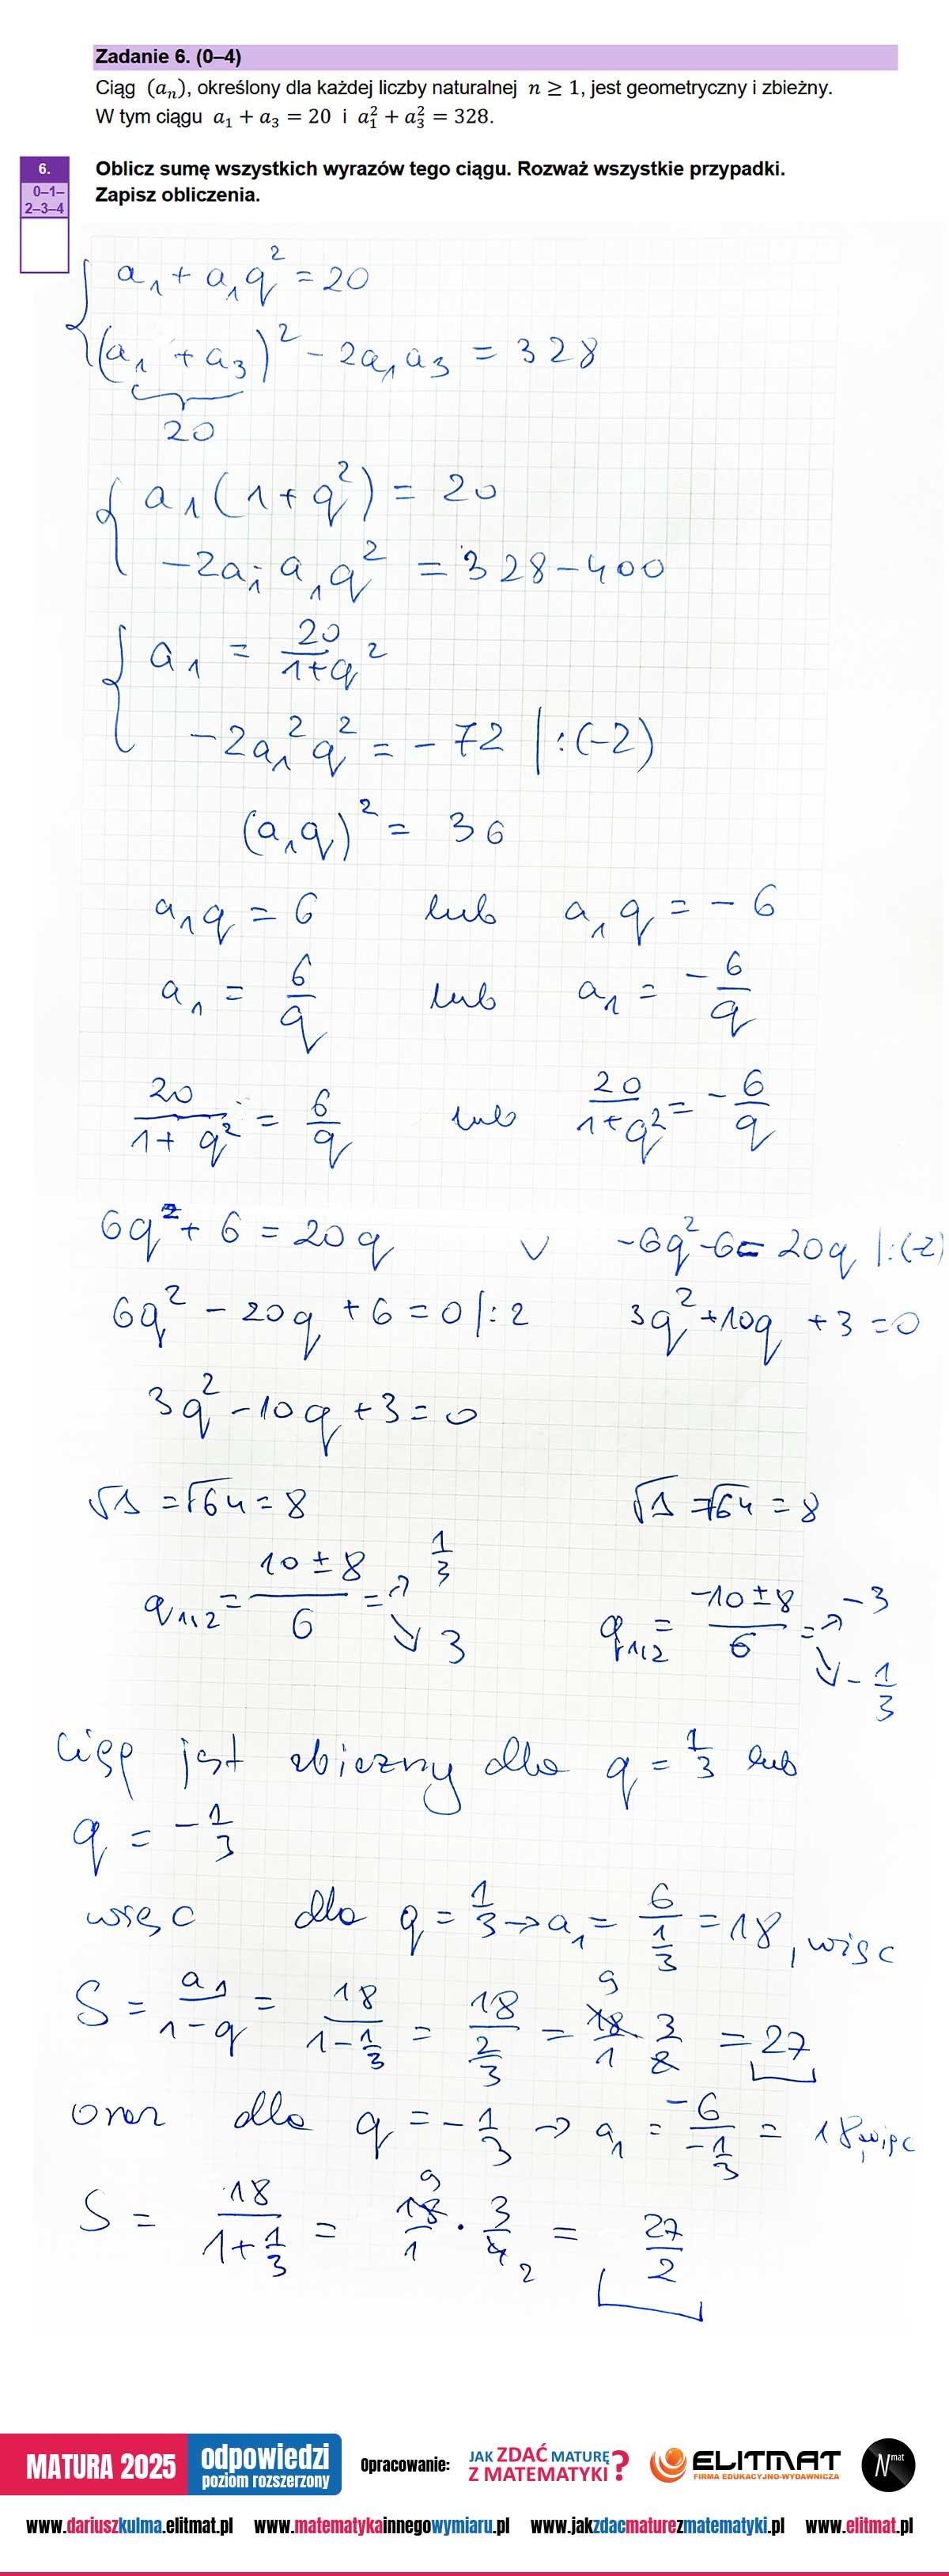 Zadanie 6. (0–4)
Ciąg (aₙ), określony dla każdej liczby naturalnej n ≥ 1, jest geometryczny i zbieżny.
W tym ciągu a₁ + a₃ = 20 i a₁² + a₃² = 328.
6.
0–1–
2–3–4
Oblicz sumę wszystkich wyrazów tego ciągu. Rozważ wszystkie przypadki.
Zapisz obliczenia.
a₁ + a₁q² = 20
(a₁ + a₃)² - 2a₁a₃ = 328
20
a₁(1+q²) = 20
-2a₁·a₁q² = 328-400
a₁ = 20/(1+q²)
-2a₁²q² = -72 |:(-2)
(a₁q)² = 36
a₁q = 6 lub a₁q = -6
a₁ = 6/q lub a₁ = -6/q
20/(1+q²) = 6/q lub 20/(1+q²) = -6/q
6q²+6 = 20q v -6q²-6 = 20q |:(-2)
6q² - 20q + 6 = 0 |:2 3q²+10q+3=0
3q²-10q+3=0
√Δ = √64 = 8 √Δ = √64 = 8
q₁,₂ = (10±8)/6 = ↗ 1/3 ↘ 3 q₁,₂ = (-10±8)/6 = ↗ -3 ↘ -1/3
Ciąg jest zbieżny dla q = 1/3 lub
q = -1/3
więc dla q = 1/3 → a₁ = 6/(1/3) = 18, więc
S = a₁/(1-q) = 18/(1-1/3) = 18/(2/3) = 18/1 · 3/2 = 27
oraz dla q = -1/3 → a₁ = -6/(-1/3) = 18, więc
S = 18/(1+1/3) = 18/1 · 3/4 = 27/2
MATURA 2025 odpowiedzi
poziom rozszerzony
Opracowanie:
JAK ZDAĆ MATURĘ
Z MATEMATYKI?
ELITMAT
FIRMA EDUKACYJNO-WYDAWNICZA
N mat
www.dariuszkulma.elitmat.pl www.matematykainnegowymiaru.pl www.jakzdacmaturezmatematyki.pl www.elitmat.pl